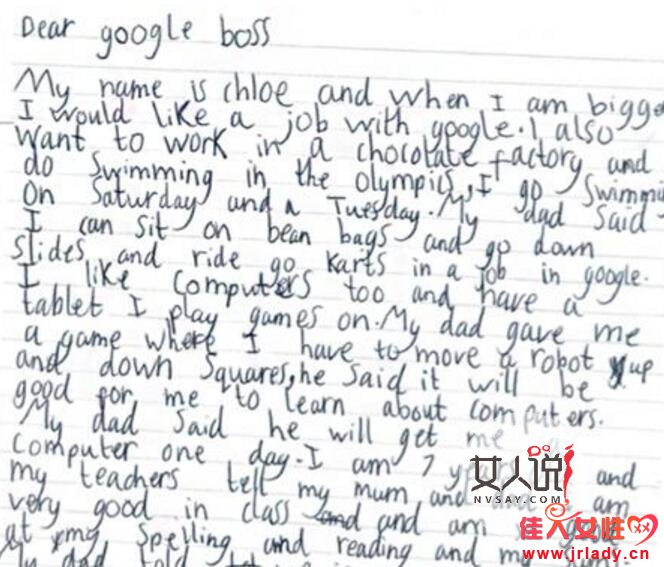 Dear google boss
My name is chloe and when I am bigge
I would like a job with google. I also
want to work in a chocolate factory and
do swimming in the olympics, I go swimmi
on Saturday and a Tuesday. My dad said
I can sit on bean bags and go down
slides and ride go karts in a job in google.
I like computers too and have a
tablet I play games on. My dad gave me
a game where I have to move a robot up
and down squares, he said it will be
good for me to learn about computers.
My dad said he will get me a
computer one day. I am 7 years and
my teachers tell my mum and I am
very good in class and and am good
at my spelling and reading and my
My dad told
女人说
NVSAY.COM
佳人女性网
www.jrlady.cn